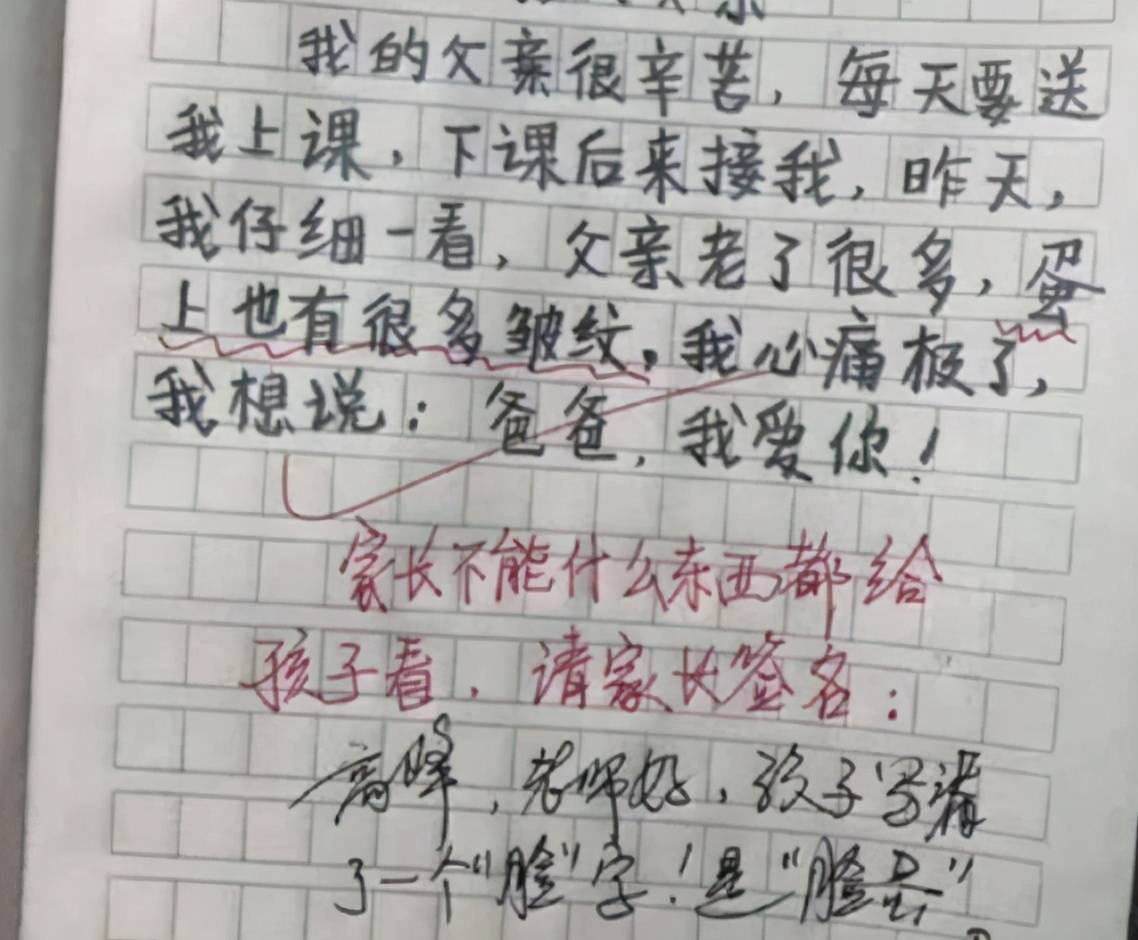 我的父亲很辛苦，每天要送
我上课，下课后来接我，昨天，
我仔细一看，父亲老了很多，蛋
上也有很多皱纹，我心痛极了，
我想说：爸爸，我爱你！
家长不能什么东西都给
孩子看，请家长签名：
高峰，老师好，孩子写漏
了一个“脸”字！是“脸蛋”